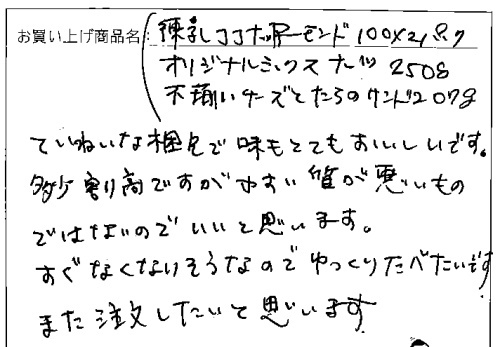 お買い上げ商品名: 練乳ココナッツアーモンド 100×2パック
オリジナルミックスナッツ 250g
不揃いチーズとたらのサンド207g
ていねいな梱包で味もとてもおいしいです。
多少割り高ですがやすい質が悪いもの
ではないのでいいと思います。
すぐなくなりそうなのでゆっくりたべたいです
また注文したいと思います